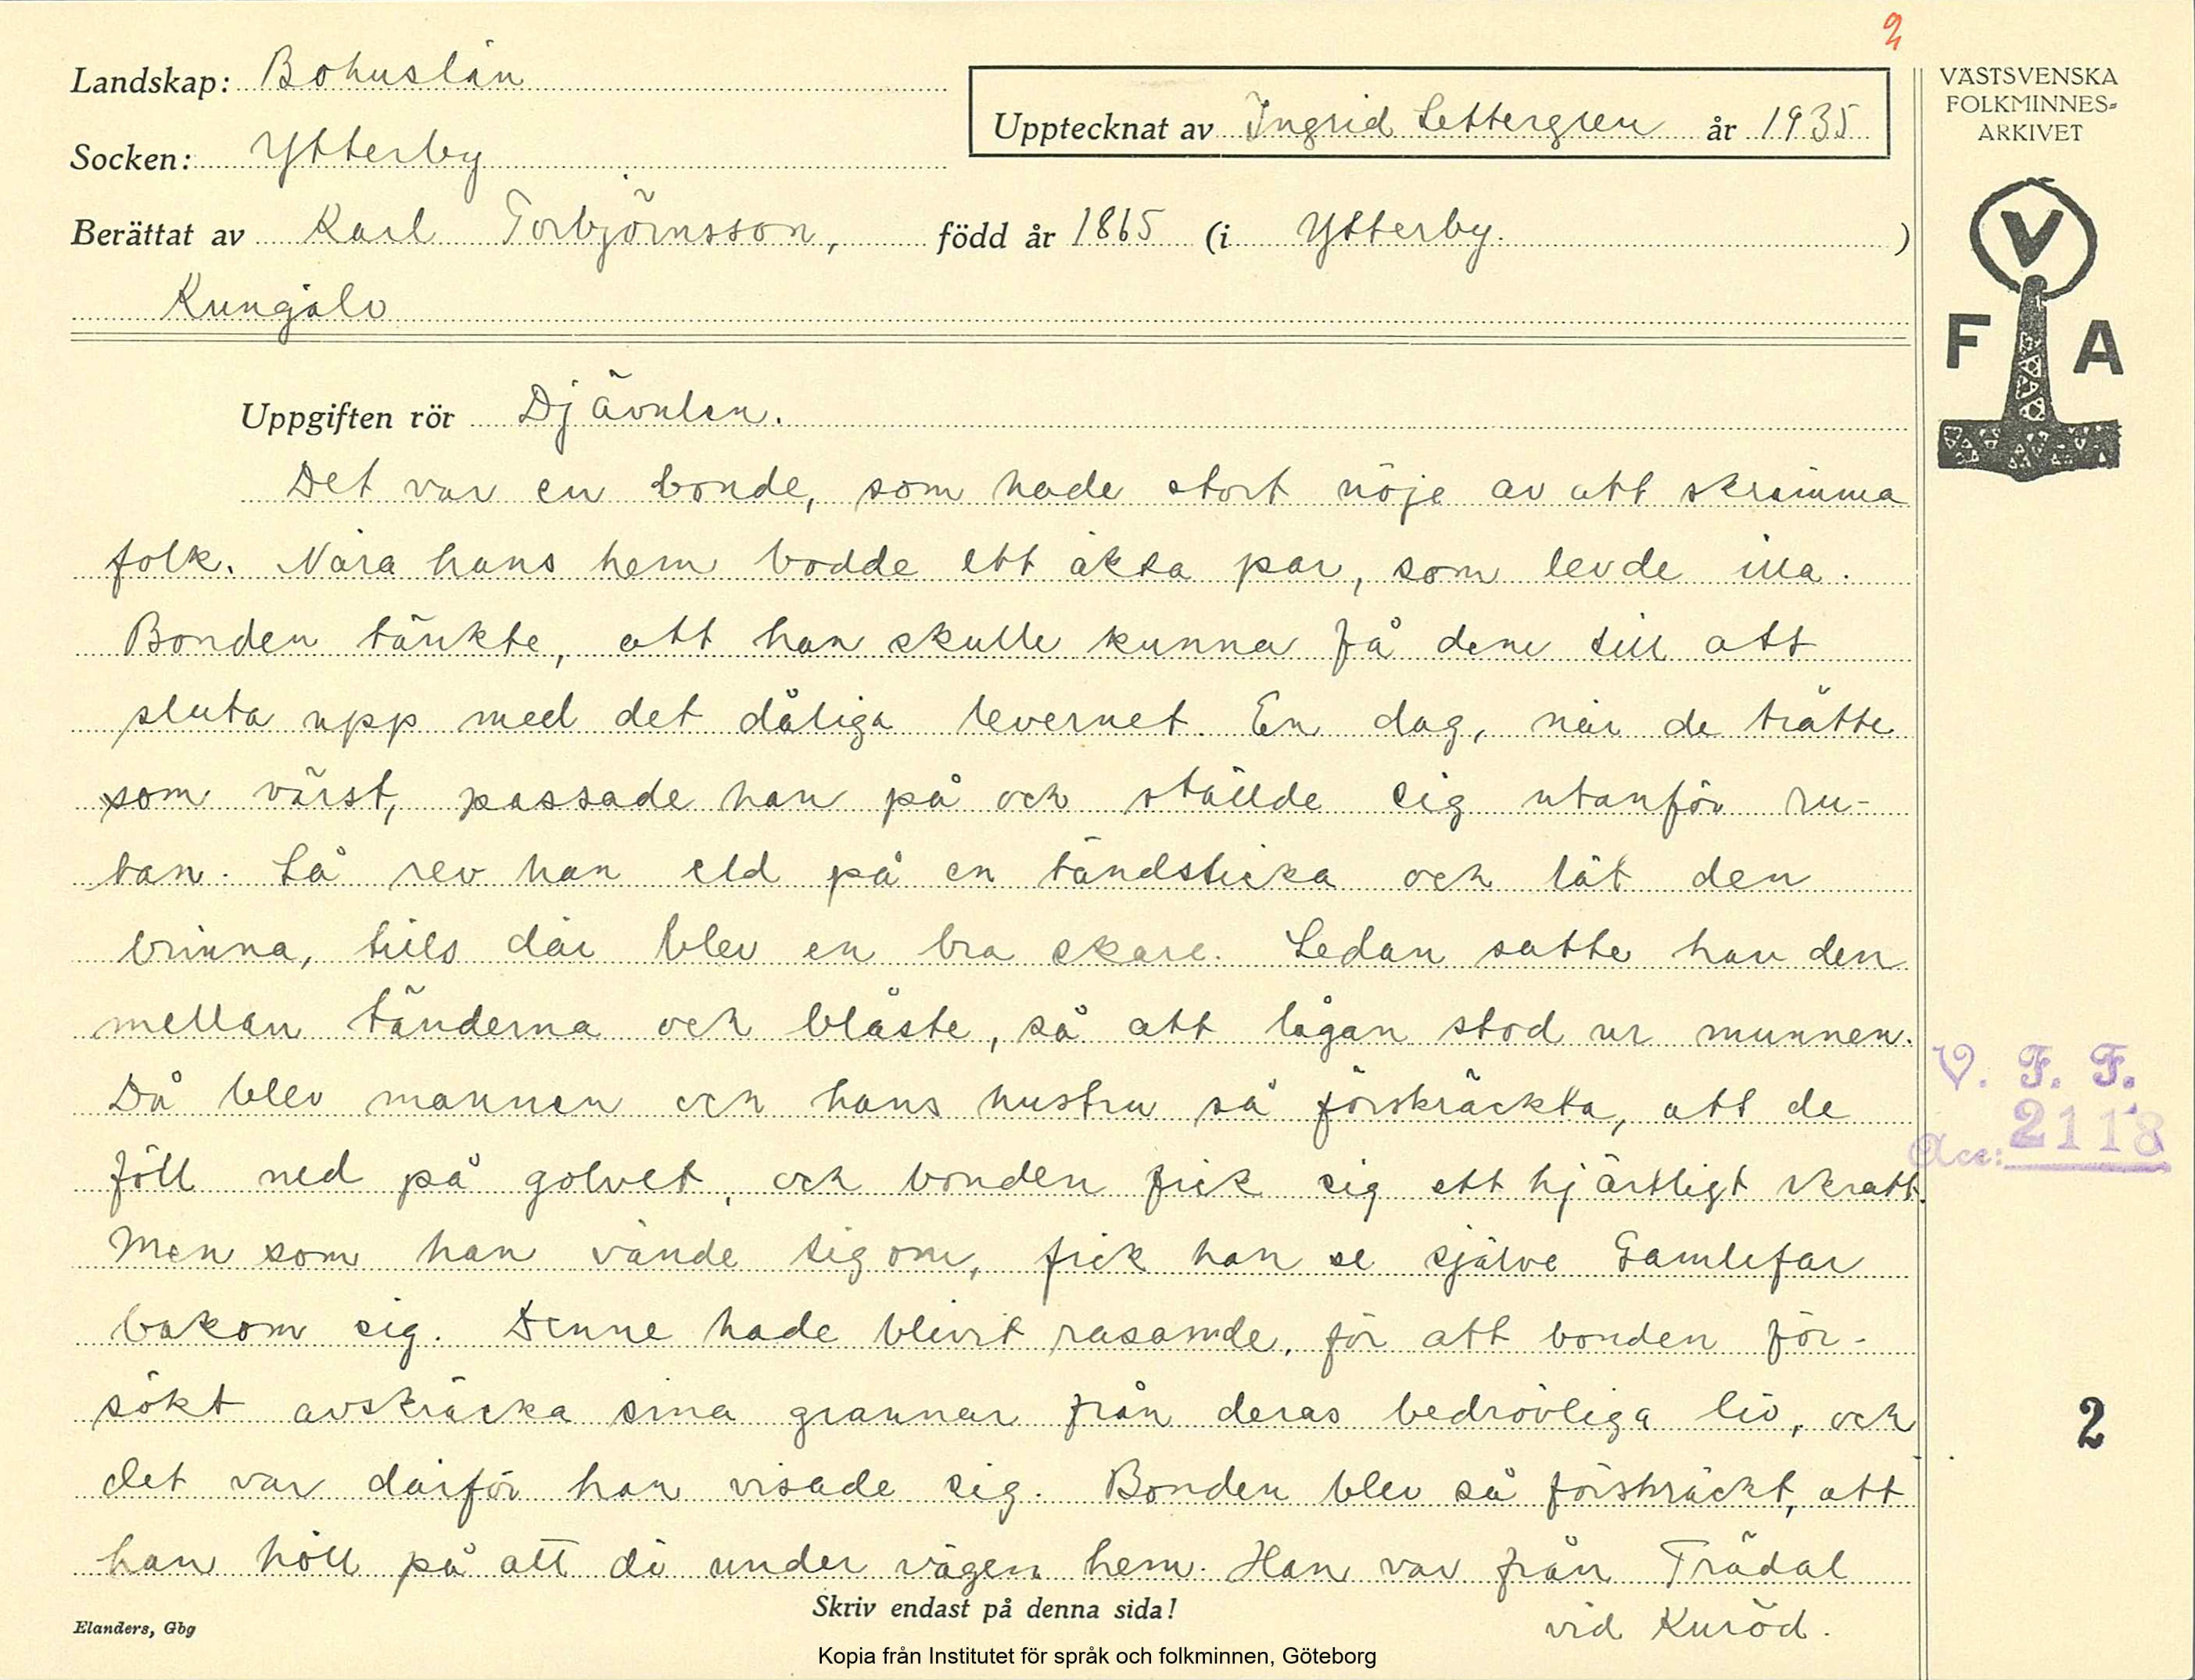 2
Landskap: Bohuslän
Socken: Ytterby
Upptecknat av Ingrid Settergren år 1935
Berättat av Karl Torbjörnsson, född år 1865 (i Ytterby. )
Kungälv
VÄSTSVENSKA
FOLKMINNES=
ARKIVET
V
F A
Uppgiften rör Djävulen.
Det var en bonde, som hade stort nöje av att skrämma
folk. Nära hans hem bodde ett äkta par, som levde illa.
Bonden tänkte, att han skulle kunna få dem till att
sluta upp med det dåliga levernet. En dag, när de trätte
som värst, passade han på och ställde sig utanför ru-
tan. Så rev han eld på en tändsticka och lät den
brinna, tills där blev en bra skare. Sedan satte han den
mellan tänderna och blåste, så att lågan stod ur munnen.
Då blev mannen och hans hustru så förskräckta, att de
föll ned på golvet, och bonden fick sig ett hjärtligt skratt.
Men som han vände sig om, fick han se själve Gamlefar
bakom sig. Denne hade blivit rasande, för att bonden för-
sökt avskräcka sina grannar från deras bedrövliga liv, och
det var därför han visade sig. Bonden blev så förskräckt, att
han höll på att dö under vägen hem. Han var från Trädal
vid Kuröd.
V. F. F.
Acc: 2118
2
Skriv endast på denna sida!
Elanders, Gbg
Kopia från Institutet för språk och folkminnen, Göteborg